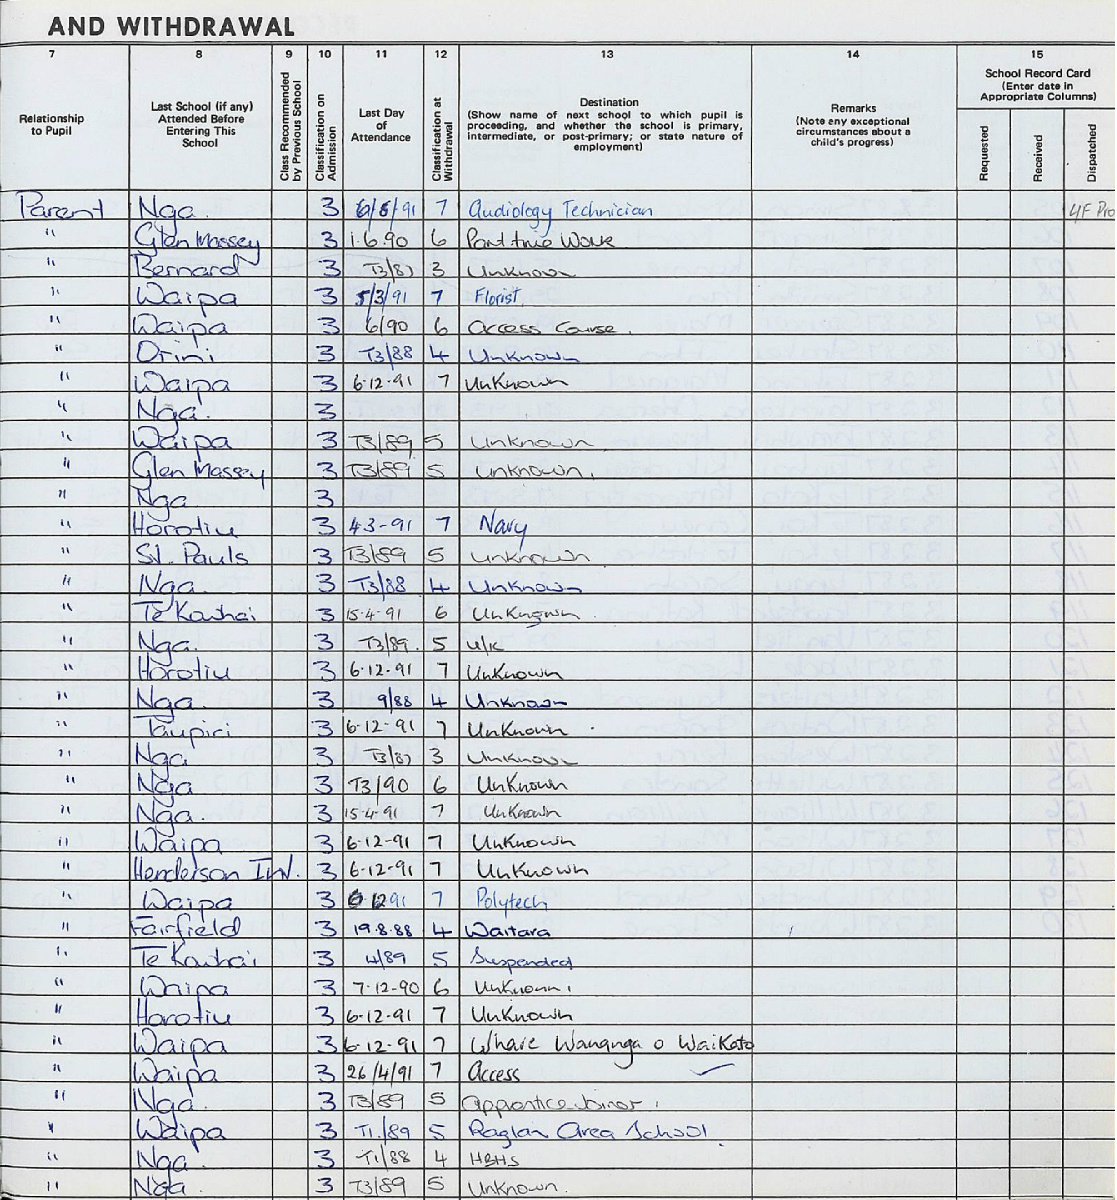 AND WITHDRAWAL
7 8 9 10 11 12 13 14 15
Relationship to Pupil
Last School (if any) Attended Before Entering This School
Class Recommended by Previous School
Classification on Admission
Last Day of Attendance
Classification at Withdrawal
Destination
(Show name of next school to which pupil is proceeding, and whether the school is primary, intermediate, or post-primary; or state nature of employment)
Remarks
(Note any exceptional circumstances about a child's progress)
School Record Card
(Enter date in Appropriate Columns)
Requested
Received
Dispatched
Parent Nga. 3 6/5/91 7 Audiology Technician
" Glen Massey 3 1.6.90 6 Part time Work
" Bernard 3 T3/87 3 Unknown
" Waipa 3 5/3/91 7 Florist.
" Waipa 3 6/90 6 Access Course.
" Orini 3 T3/88 4 Unknown
" Waipa 3 6-12-91 7 UnKnown
" Nga. 3
" Waipa 3 T3/89 5 Unknown
" Glen Massey 3 T3/89 5 Unknown.
" Nga 3
" Horotiu 3 4-3-91 7 Navy
" St. Pauls 3 T3/89 5 Unknown
" Nga. 3 T3/88 4 Unknown
" Te Kowhai 3 15-4-91 6 UnKnown
" Nga. 3 T3/89. 5 u/k
" Horotiu 3 6-12-91 7 UnKnown
" Nga. 3 9/88 4 Unknown
" Taupiri 3 6-12-91 7 UnKnown
" Nga 3 T3/87 3 Unknown
" Nga 3 T3/90 6 UnKnown
" Nga. 3 15-4-91 7 UnKnown
" Waipa 3 6-12-91 7 UnKnown
" Henderson Int. 3 6-12-91 7 UnKnown
" Waipa 3 6 12 91 7 Polytech
" Fairfield 3 19.8.88 4 Waitara
" Te Kowhai 3 4/89 5 Suspended
" Waipa 3 7-12-90 6 UnKnown
" Horotiu 3 6-12-91 7 UnKnown
" Waipa 3 6-12-91 7 Whare Wananga o WaiKato
" Waipa 3 26/4/91 7 Access
" Nga. 3 T3/89 5 Apprentice Joiner.
" Waipa 3 T1/89 5 Raglan Area School
" Nga. 3 T1/88 4 HBHS
" Nga. 3 T3/89 5 Unknown.